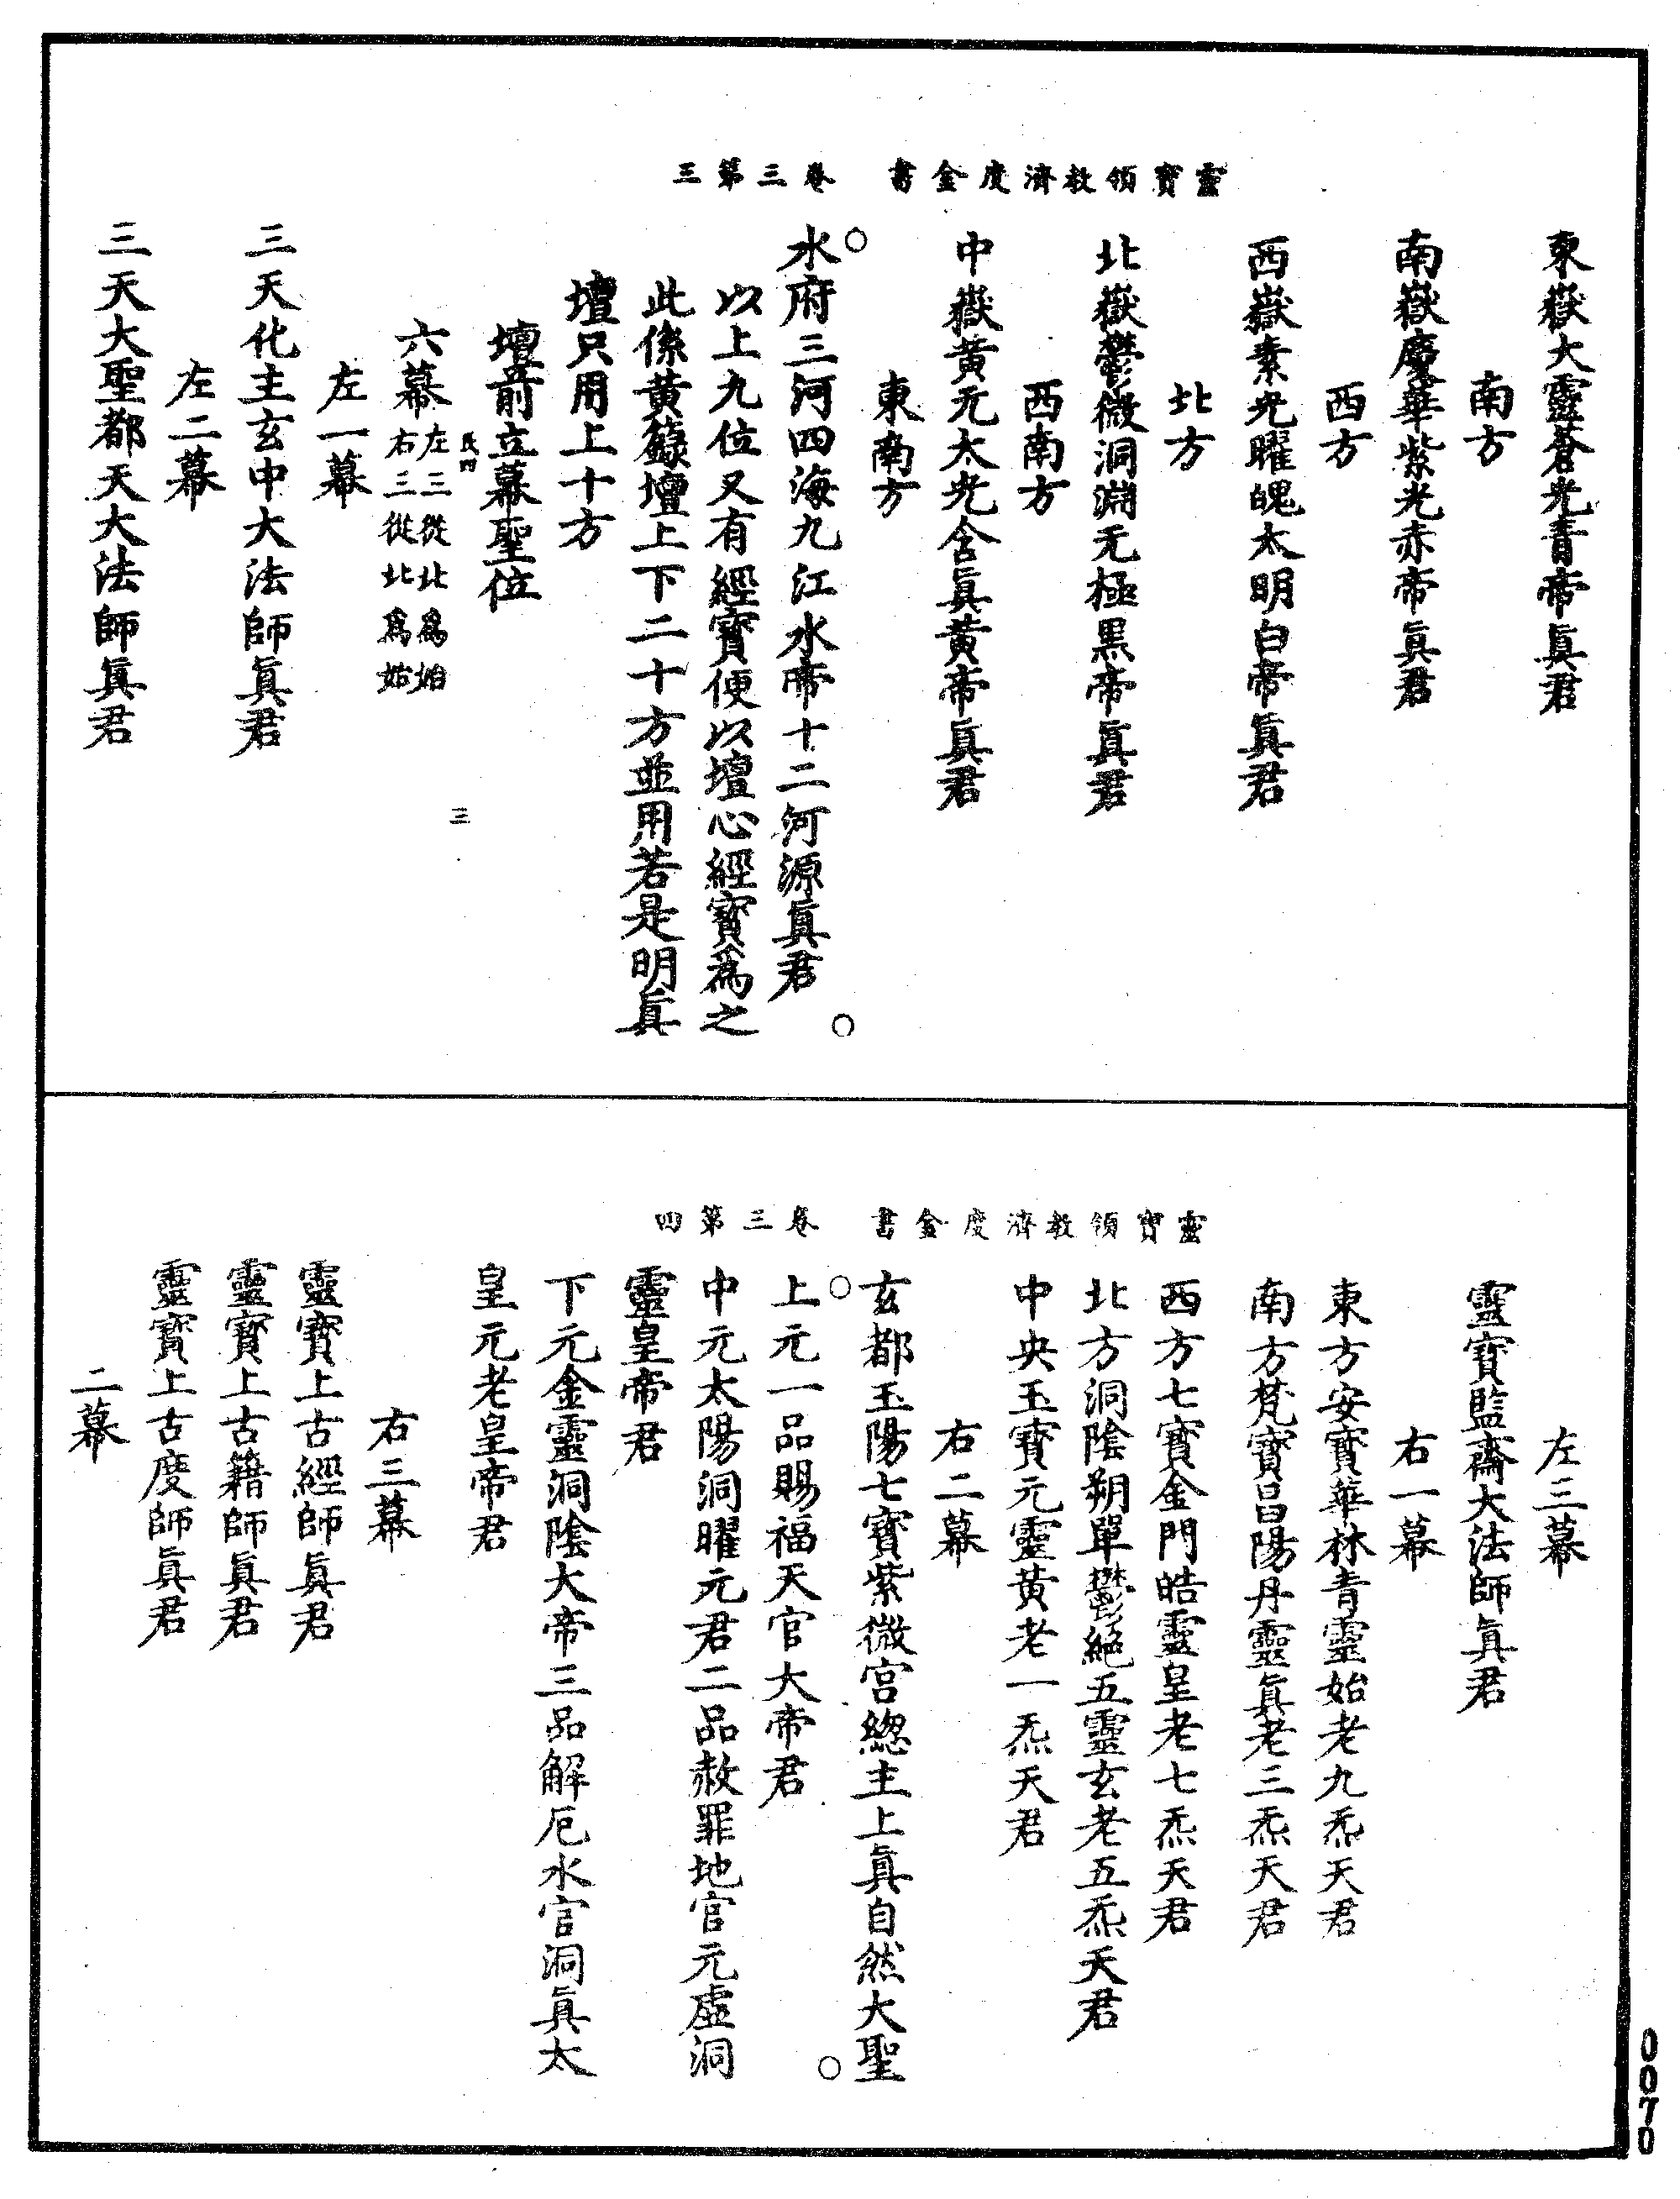 靈寶領教濟度金書　卷三第三
東嶽大靈蒼光青帝眞君
南方
南嶽慶華紫光赤帝眞君
西方
西嶽素光曜魄太明白帝眞君
北方
北嶽鬱微洞淵无極黒帝眞君
西南方
中嶽黄元太光含眞黄帝眞君
東南方
水府三河四海九江水帝十二河源眞君
以上九位又有經寶便以壇心經寶爲之
此係黄籙壇上下二十方並用若是明眞
壇只用上十方
壇前立幕聖位
氏四
三
六幕左三從北爲始
右三從北爲始
左一幕
三天化主玄中大法師眞君
左二幕
三天大聖都天大法師眞君
靈寶領教濟度金書　卷三第四
左三幕
靈寶監齋大法師眞君
右一幕
東方安寶華林青靈始老九炁天君
南方梵寶昌陽丹靈眞老三炁天君
西方七寶金門皓靈皇老七炁天君
北方洞陰朔單鬱絕五靈玄老五炁天君
中央玉寶元靈黄老一炁天君
右二幕
玄都玉陽七寶紫微宫緫主上眞自然大聖
上元一品賜福天官大帝君
中元太陽洞曜元君二品赦罪地官元虛洞
靈皇帝君
下元金靈洞陰大帝三品解厄水官洞眞太
皇元老皇帝君
右三幕
靈寶上古經師眞君
靈寶上古籍師眞君
靈寶上古度師眞君
二幕
0070